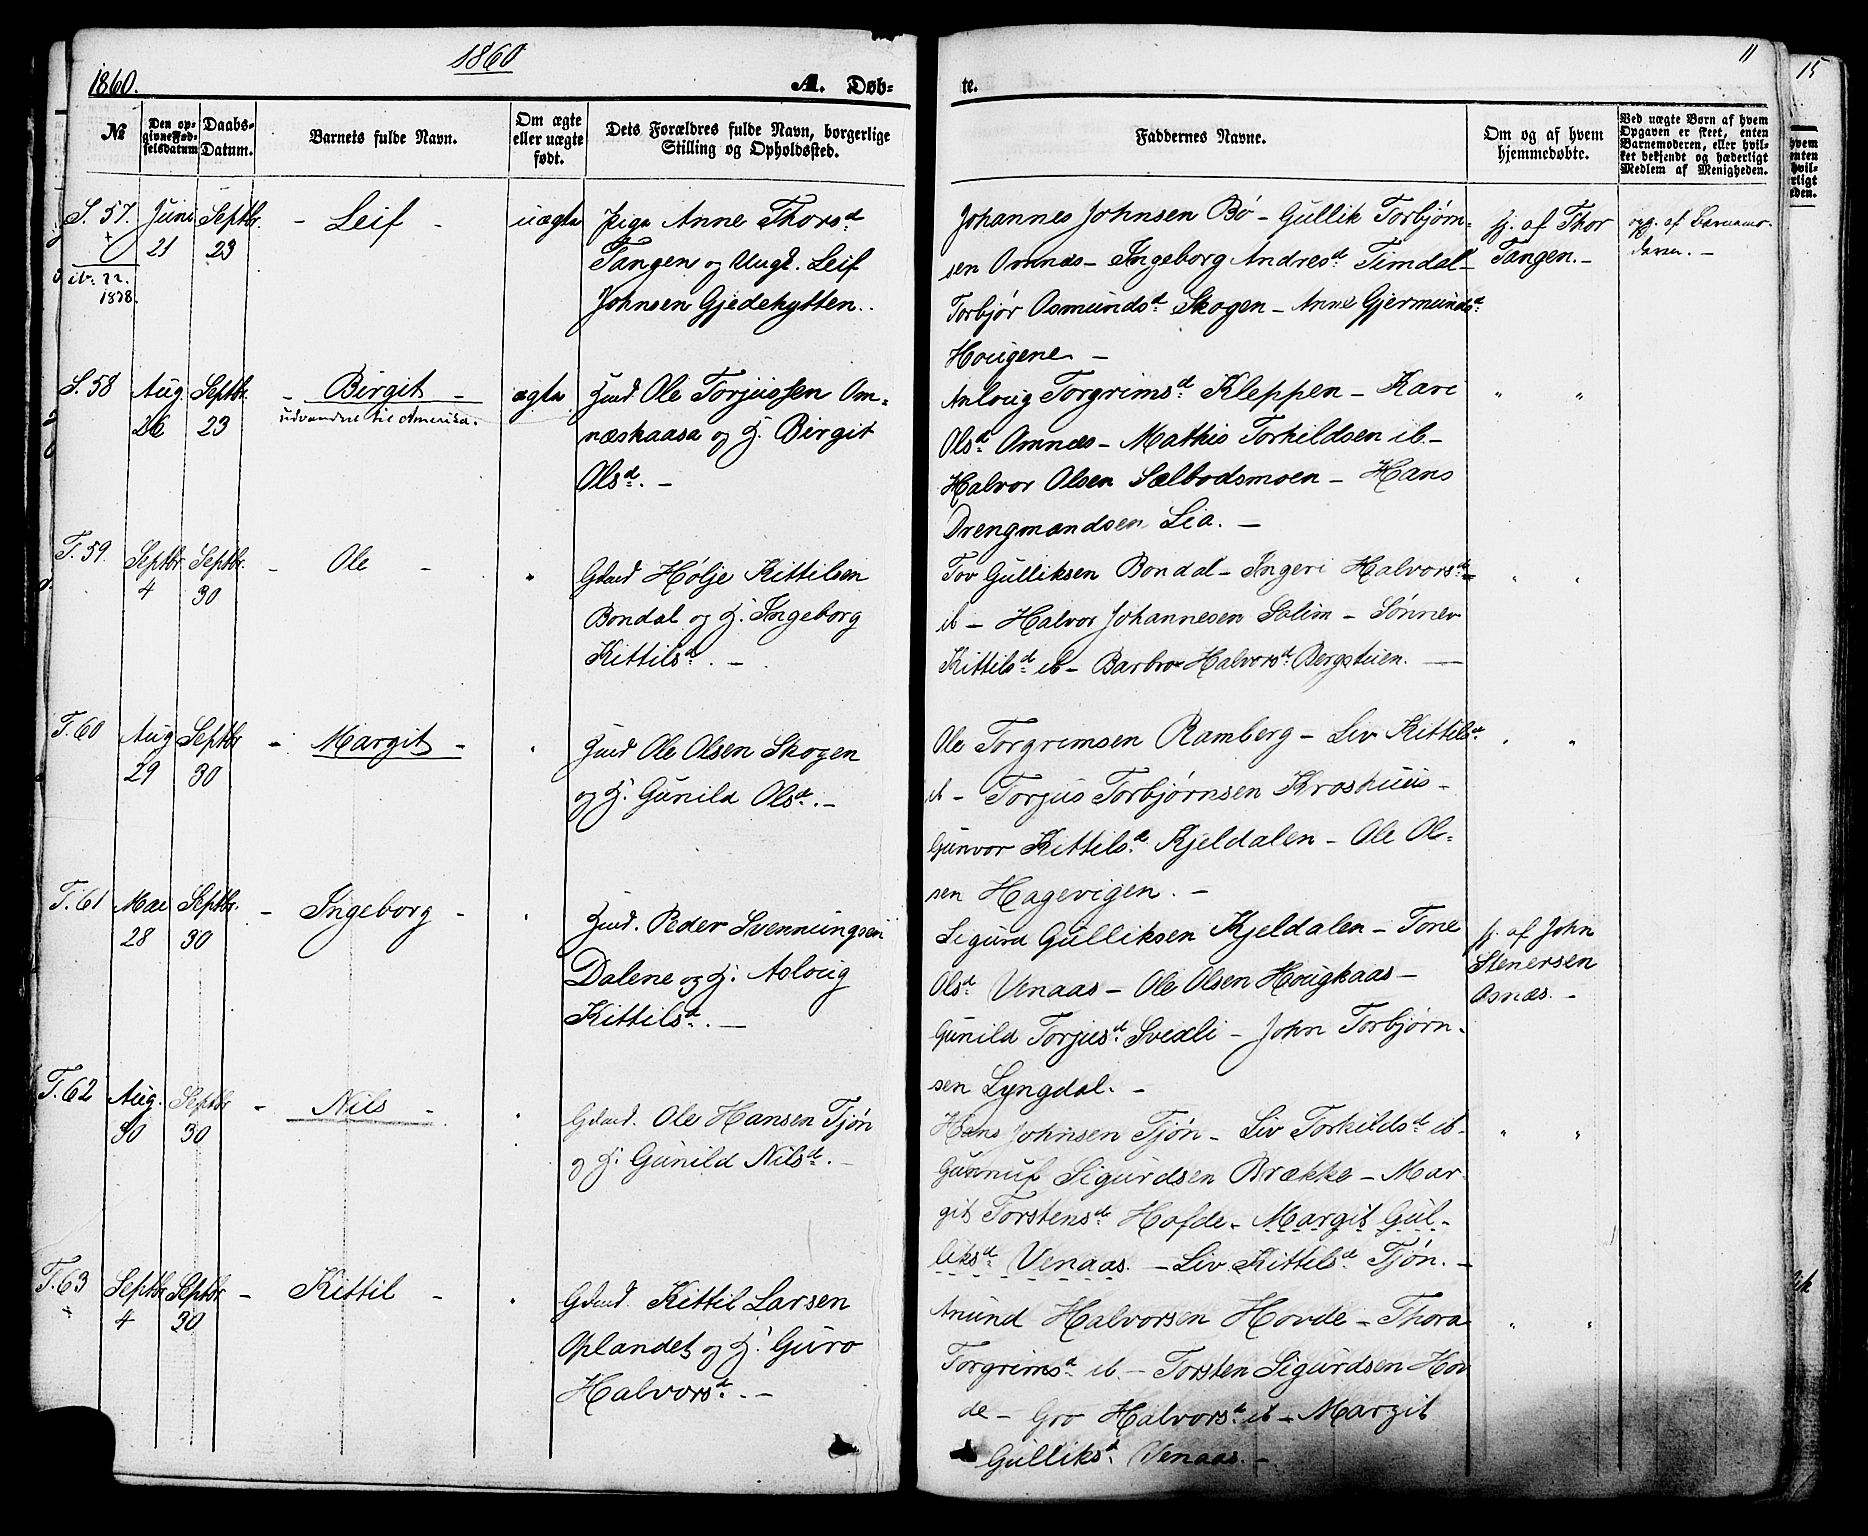 1860
1860. A. Døb-
te. 11
15
№ Den opgivne Fødselsdatum Daabs-Datum. Barnets fulde Navn. Om ægte eller uægte født. Dets Forældres fulde Navn, borgerlige Stilling og Opholdssted.
Faddernes Navne. Om og af hvem hjemmedøbte. Ved uægte Børn af hvem Opgaven er skeet, enten Barnemoderen, eller hvilket bekjendt og hæderligt Medlem af Menigheden.
S. 57. Juni Septbr. - Leif - uægte Pige Anne Thorsd.
21 23 Tangen og Ungk. Leif
1878. Johnsen Gjedehytten.
Johannes Johnsen Bø - Gullik Torbjørn- hj. af Thor opg. af Barnemo-
sen Omnæs - Ingeborg Andresd. Timdal - Tangen. - deren. -
Torbjør Osmundsd. Skogen - Anne Gjermundsd.
Hougene -
S. 58 Aug Septbr. - Birgit - ægte Huusd Ole Torjussen Om-
26 23 udvandret til Amerika. næskaasa og H. Birgit
Olsd. -
Aaloug Torgrimsd. Kleppen - Kari " "
Olsd. Omnæs - Mathis Torkildsen ib. -
Halvor Olsen Sælbodsmoen - Hans
Drengmandsen Lia. -
T. 59. Septbr. Septbr. - Ole - " Gdmd Hølje Kittilsen
4 30 Bondal og H. Ingeborg
Kittilsd. -
Tov Gulliksen Bondal - Ingeri Halvorsd. " "
ib - Halvor Johannesen Solim - Sønnev
Kittilsd. ib - Barbro Halvorsd. Bergstuen. -
T. 60 Aug Septbr - Margit - " Huusd Ole Olsen Skogen
29 30 og H. Gunild Olsd. -
Ole Torgrimsen Ramberg - Liv Kittilsd. " "
ib - Torjus Torbjørnsen Kroshuus -
Gunvor Kittilsd. Kjeldalen - Ole Ol-
sen Hagevigen. -
T. 61 Mai Septbr. - Ingeborg - " Huusd. Peder Svenningsen
28 30 Dalene og H. Asloug
Kittilsd. -
Sigurd Gulliksen Kjeldalen - Tone hj. af John
Olsd. Venaas - Ole Olsen Hougkaas - Stenersen
Gunild Torjusd. Svedli - John Torbjørn- Osnæs. -
sen Lyngdal. -
T. 62 Aug. Septbr - Nils - " Gdmd. Ole Hansen Tjøn
30 30 og H. Gunild Nilsd. -
Hans Johnsen Tjøn - Liv Torkildsd. ib - " "
Gunnuf Sigurdsen Brække - Mar-
git Torstensd. Hofde - Margit Gul-
liksd. Venaas. - Liv Kittilsd. Tjøn. -
T. 63 Septbr Septbr - Kittil - " Gdmd. Kittil Larsen
4 30 Oplandet og H. Guro
Halvorsd. -
Anund Halvorsen Hovde - Thora " "
Torgrimsd. ib. - Torsten Sigurdsen Hov
de - Gro Halvorsd. ib - Margit
Gulliksd. Venaas. -